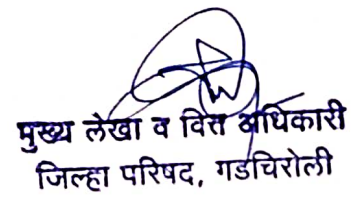 मुख्य लेखा व वित्त अधिकारी
जिल्हा परिषद, गडचिरोली